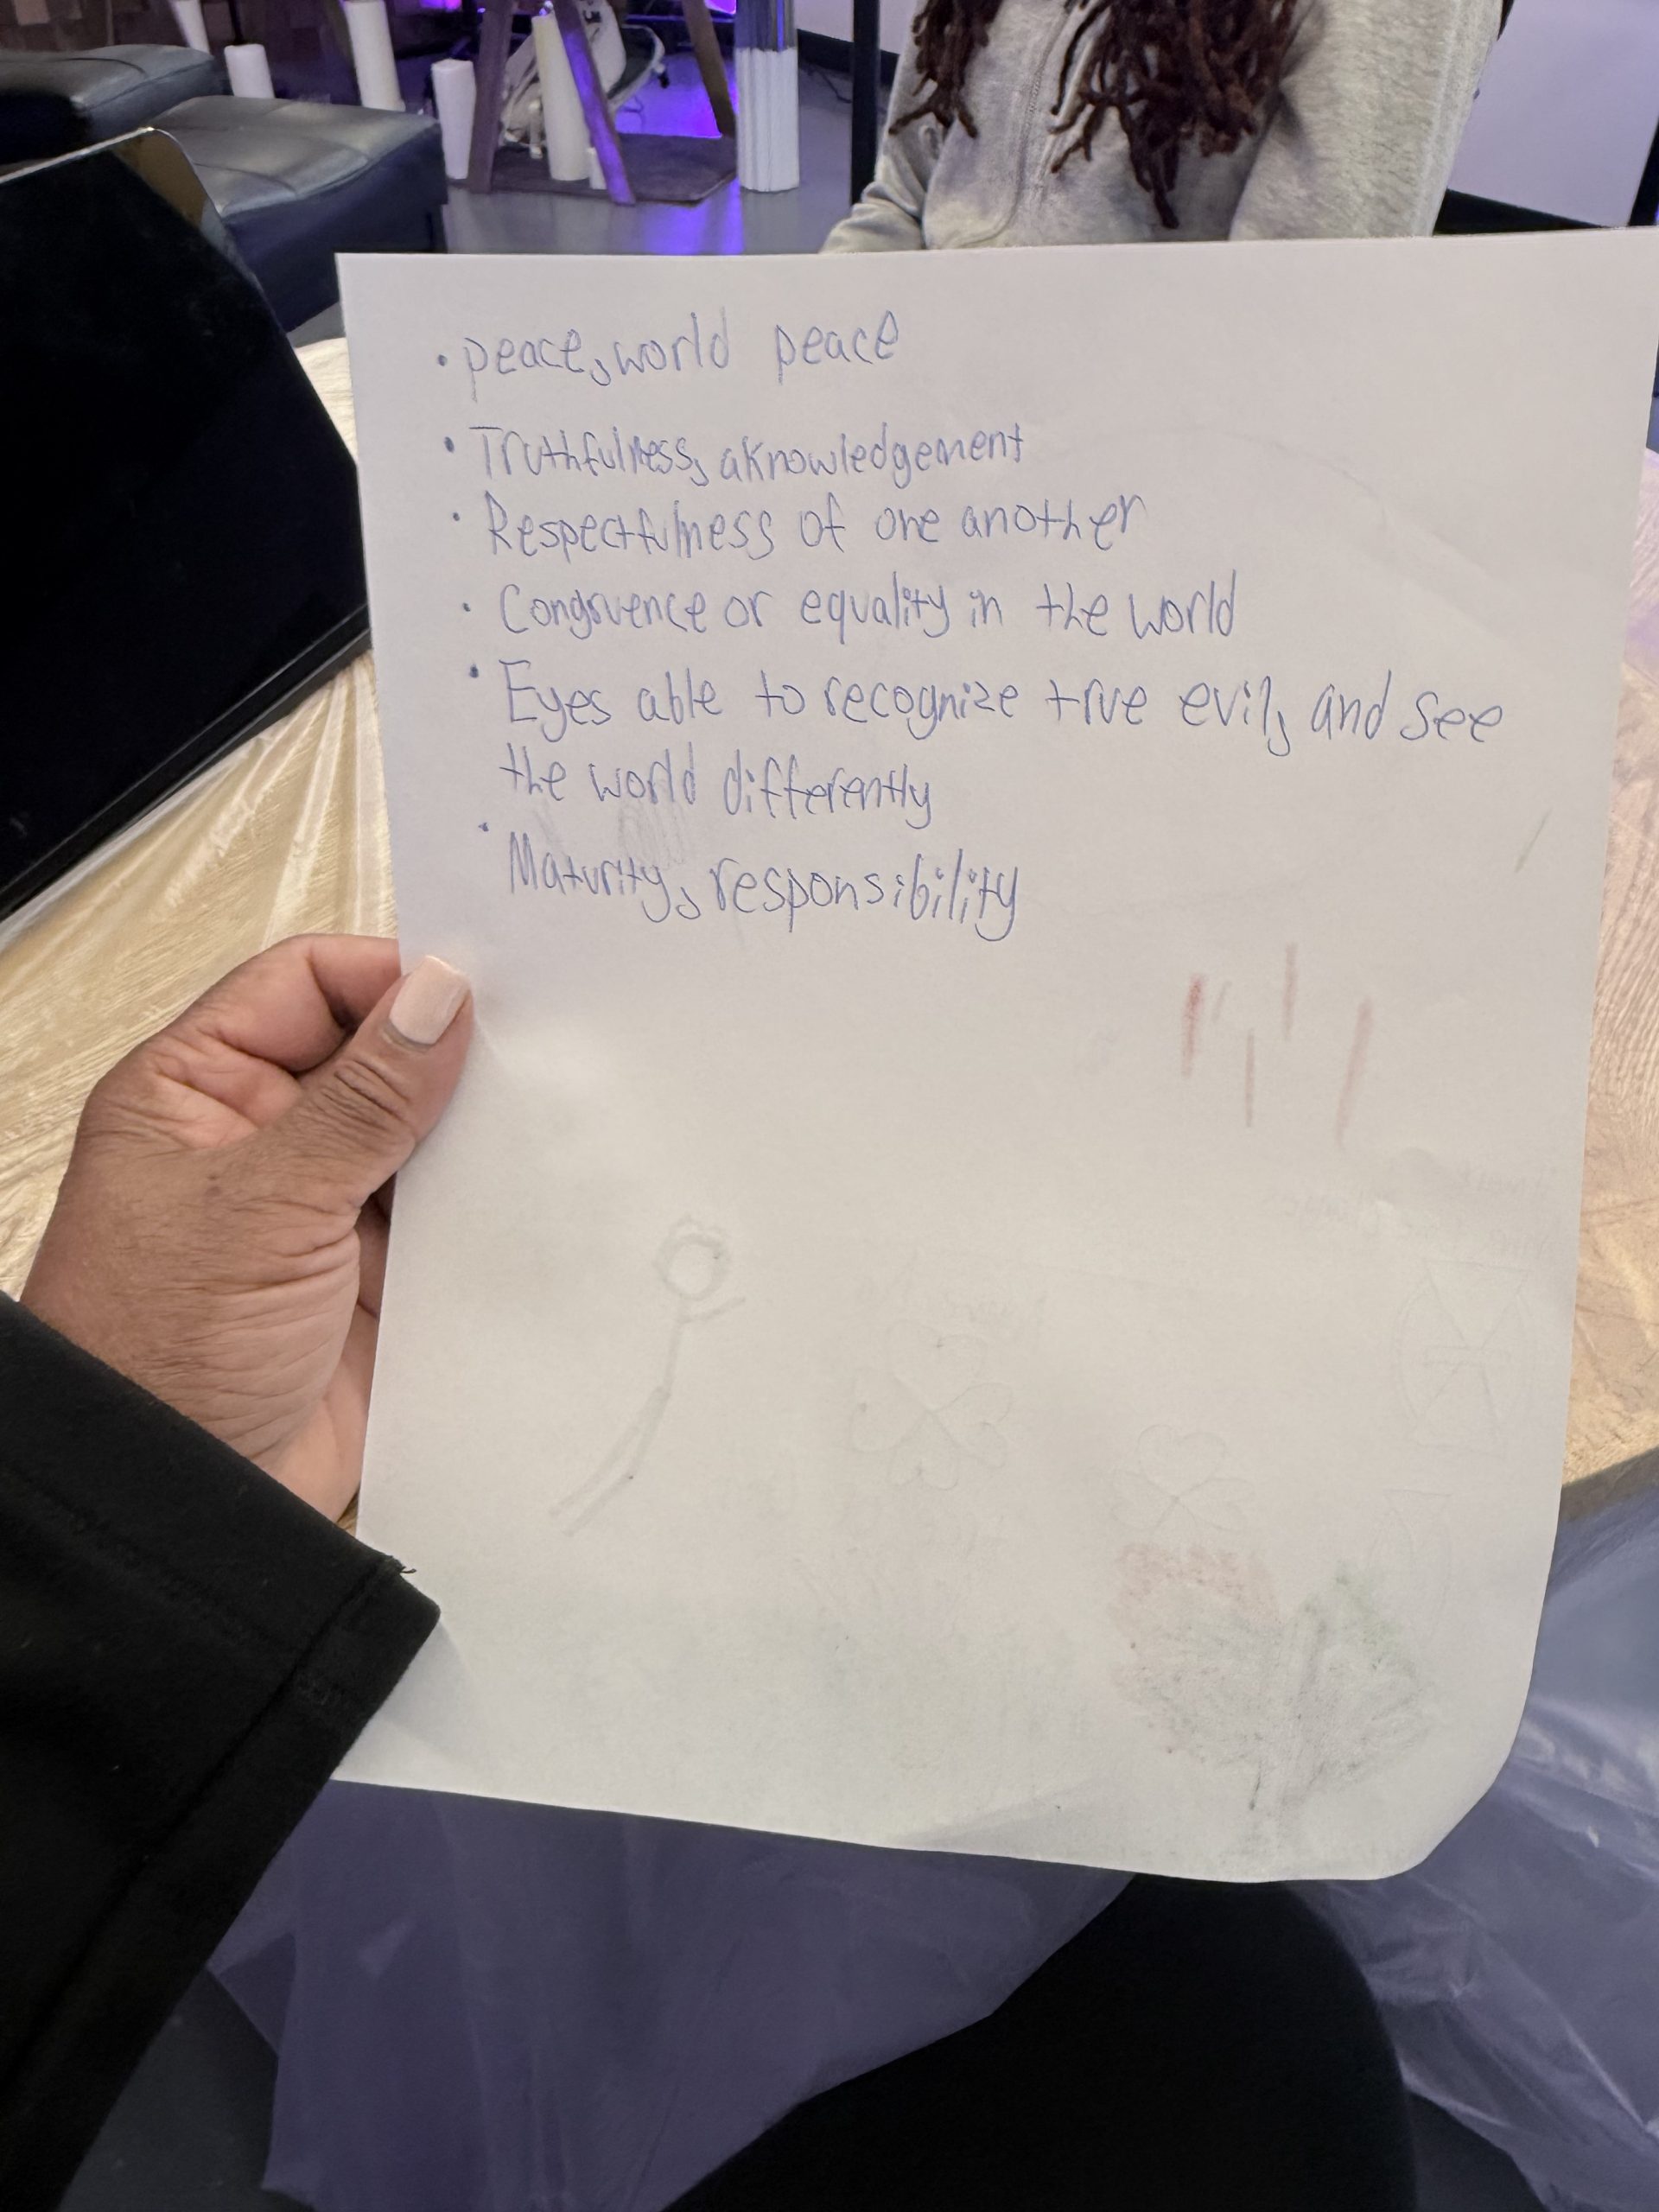 • peace, world peace
• Truthfulness, aknowledgement
• Respectfulness of one another
• Congruence or equality in the world
• Eyes able to recognize true evil, and see
the world differently
• Maturity, responsibility